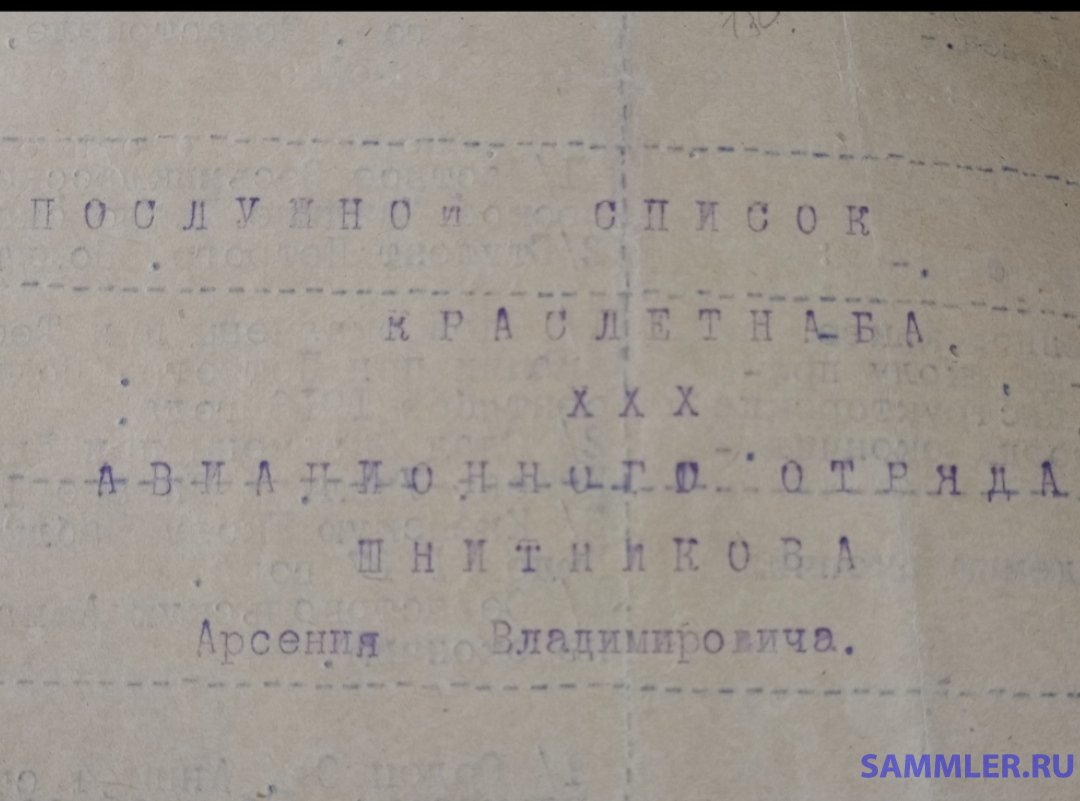 130.
ПОСЛУЖНОЙ СПИСОК
КРАСЛЕТНАБА.
ХХХ
АВИАЦИОННОГО ОТРЯДА
ШНИТНИКОВА
Арсения Владимировича.
SAMMLER.RU